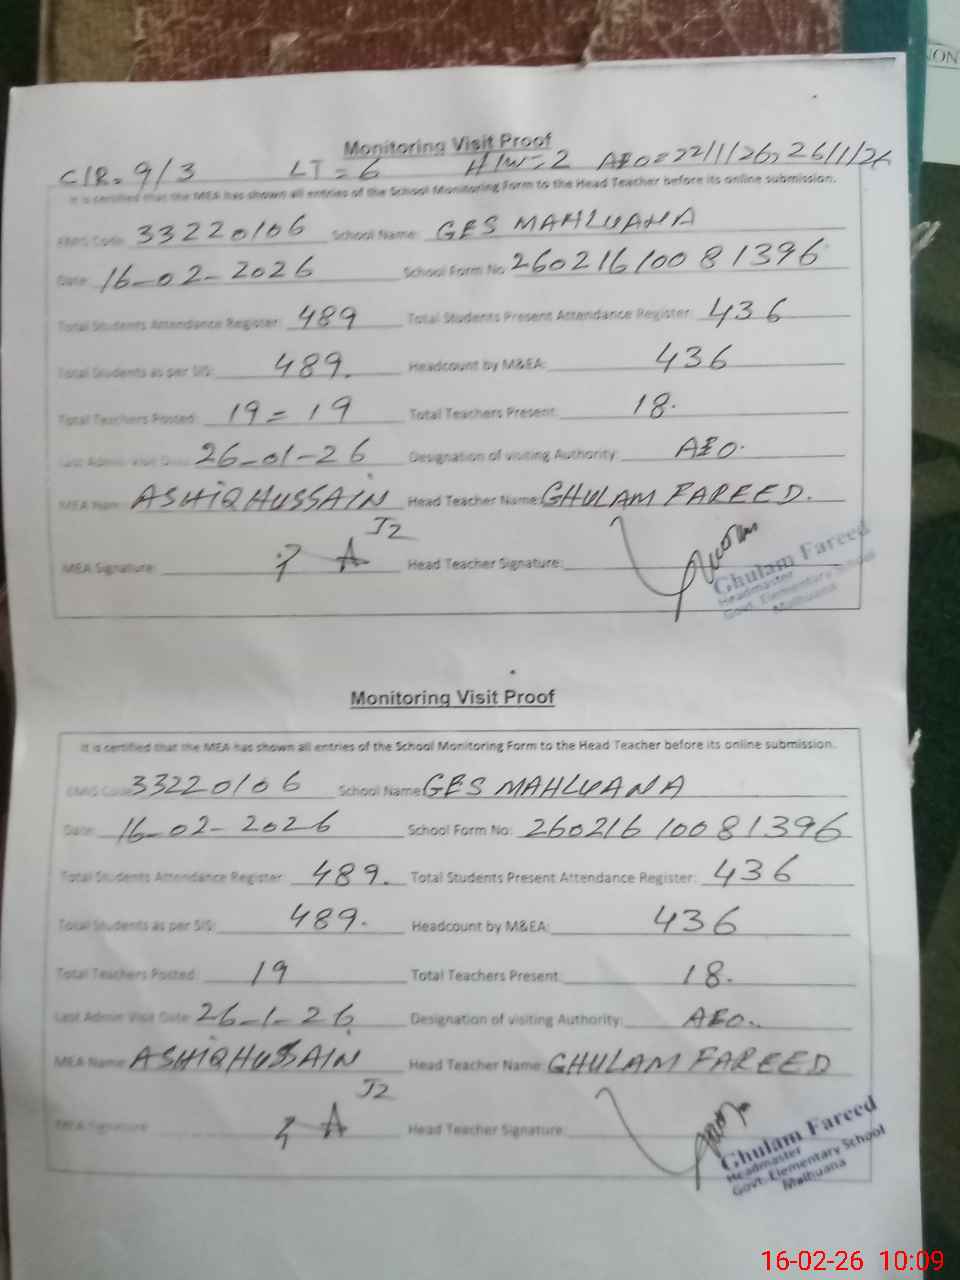 NON
Monitoring Visit Proof
C/R = 9/3 LT = 6 H/W = 2 AEO = 22/1/26, 26/1/26
It is certified that the MEA has shown all entries of the School Monitoring Form to the Head Teacher before its online submission.
EMIS Code: 33220106 School Name: GES MAHLUANA
Date: 16-02-2026 School Form No: 26021610081396
Total Students Attendance Register: 489 Total Students Present Attendance Register: 436
Total Students as per SIS: 489. Headcount by M&EA: 436
Total Teachers Posted: 19 = 19 Total Teachers Present: 18.
Last Admin Visit Date: 26-01-26 Designation of visiting Authority: AEO.
MEA Name: ASHIQ HUSSAIN Head Teacher Name: GHULAM FAREED.
J2
MEA Signature: Head Teacher Signature:
Ghulam Fareed
Headmaster
Govt. Elementary School
Malhuana
Monitoring Visit Proof
It is certified that the MEA has shown all entries of the School Monitoring Form to the Head Teacher before its online submission.
EMIS Code: 33220106 School Name: GES MAHLUANA
Date: 16-02-2026 School Form No: 26021610081396
Total Students Attendance Register: 489. Total Students Present Attendance Register: 436
Total Students as per SIS: 489. Headcount by M&EA: 436
Total Teachers Posted: 19 Total Teachers Present: 18.
Last Admin Visit Date: 26-1-26 Designation of visiting Authority: AEO..
MEA Name: ASHIQ HUSSAIN Head Teacher Name: GHULAM FAREED
J2
MEA Signature: Head Teacher Signature:
Ghulam Fareed
Headmaster
Govt. Elementary School
Malhuana
16-02-26 10:09